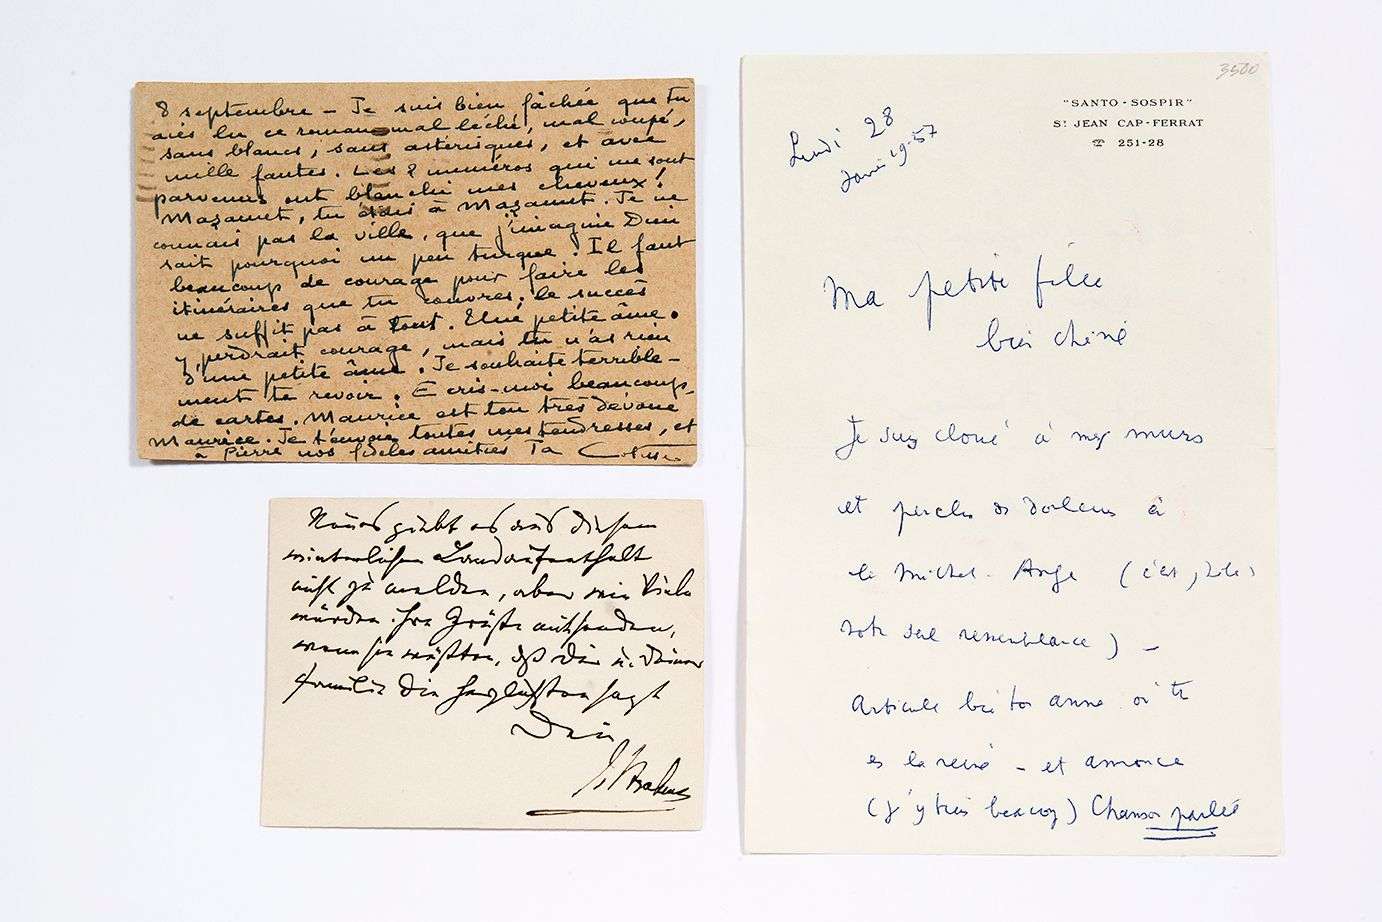 8 septembre – Je suis bien fâchée que tu
aies lu ce roman mal léché, mal coupé,
sans blancs, sans astérisques, et avec
mille fautes. Les 2 numéros qui me sont
parvenus ont blanchi mes cheveux!
Mazamet, tu étais à Mazamet. Je ne
connais pas la ville, que j'imagine Dieu
sait pourquoi un peu turque. Il faut
beaucoup de courage pour faire les
itinéraires que tu couvres. Le succès
ne suffit pas à tout. Une petite âme
y perdrait courage, mais tu n'as rien
d'une petite âme. Je souhaite terrible-
ment te revoir. Ecris-moi beaucoup
de cartes. Maurice est ton très dévoué
Maurice. Je t'envoie toutes mes tendresses, et
à Pierre nos fidèles amitiés Ta Colette
Neues giebt es aus diesem
winterlichen Landaufenthalt
nicht zu melden, aber wie Viele
würden Ihre Grüße mitsenden,
wenn sie wüßten, daß Dir u. Deiner
Familie die herzlichsten sagt
Dein
3500
"SANTO-SOSPIR"
St JEAN CAP-FERRAT
☎ 251-28
Lundi 28
Janv 1957
Ma petite fille
bien chérie
Je suis cloué à mes murs
et perclus de douleurs à
la Michel-Ange (c'est, hélas
notre seule ressemblance) –
Articule bien ton anne où tu
es la reine – et annonce
(j'y tiens beaucoup) Chanson parlée